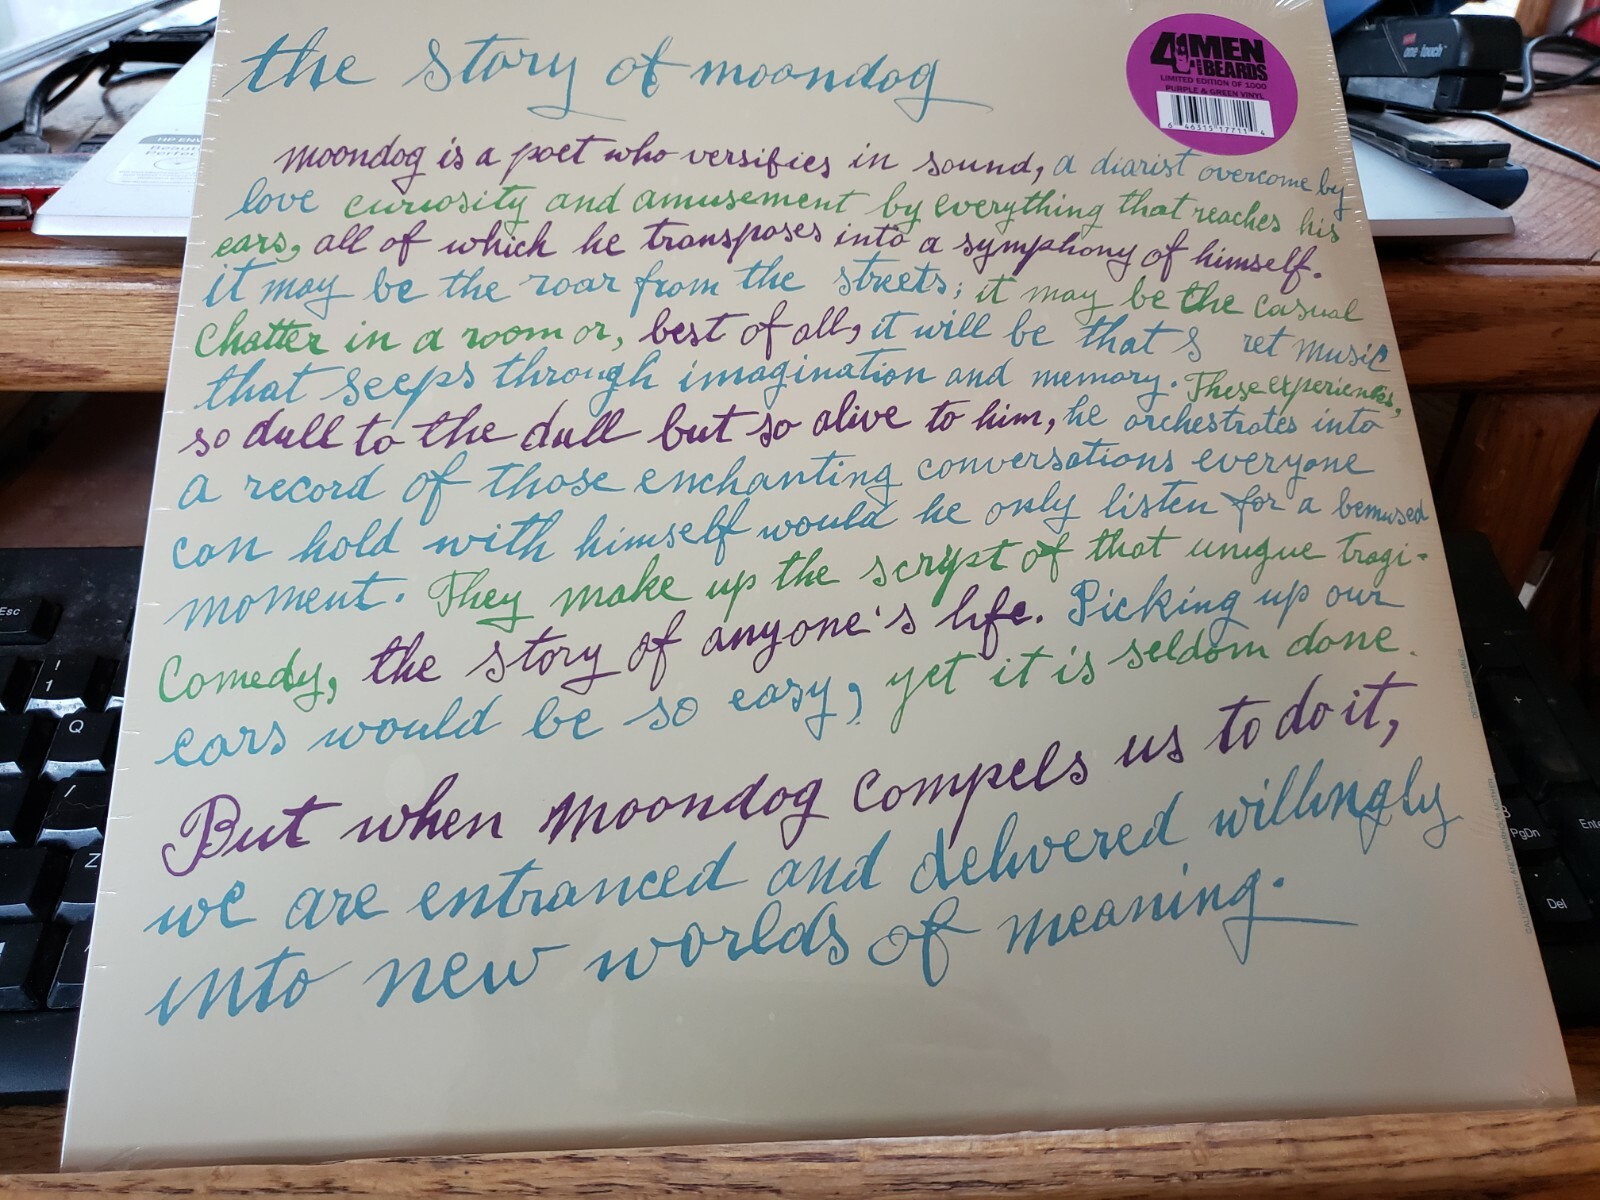 the story of moondog
4 MEN
WITH BEARDS
LIMITED EDITION OF 1000
PURPLE & GREEN VINYL
6 46315 17711 4
moondog is a poet who versifies in sound, a diarist overcome by
love curiosity and amusement by everything that reaches his
ears, all of which he transposes into a symphony of himself.
it may be the roar from the streets; it may be the casual
chatter in a room or, best of all, it will be that s ret music
that seeps through imagination and memory. These experiences,
so dull to the dull but so alive to him, he orchestrates into
a record of those enchanting conversations everyone
can hold with himself would he only listen for a bemused
moment. They make up the script of that unique tragi-
Comedy, the story of anyone's life. Picking up our
ears would be so easy, yet it is seldom done.
But when moondog compels us to do it,
we are entranced and delivered willingly
into new worlds of meaning.
CALLIGRAPHY: ANDY WARHOL'S MOTHER
one touch
HP ENV
Esc
!
1
Q
Z
+
PgDn
Ente
Del